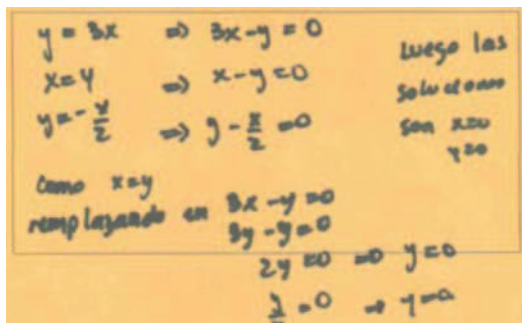 y = 3x ⇒ 3x-y = 0
x=y ⇒ x-y=0
y=-x/2 ⇒ y-x/2=0
Luego las
soluciones
son x=0
y=0
como x=y
remplazando en 3x-y=0
3y-y=0
2y=0 ⇒ y=0
y/2=0 ⇒ y=0